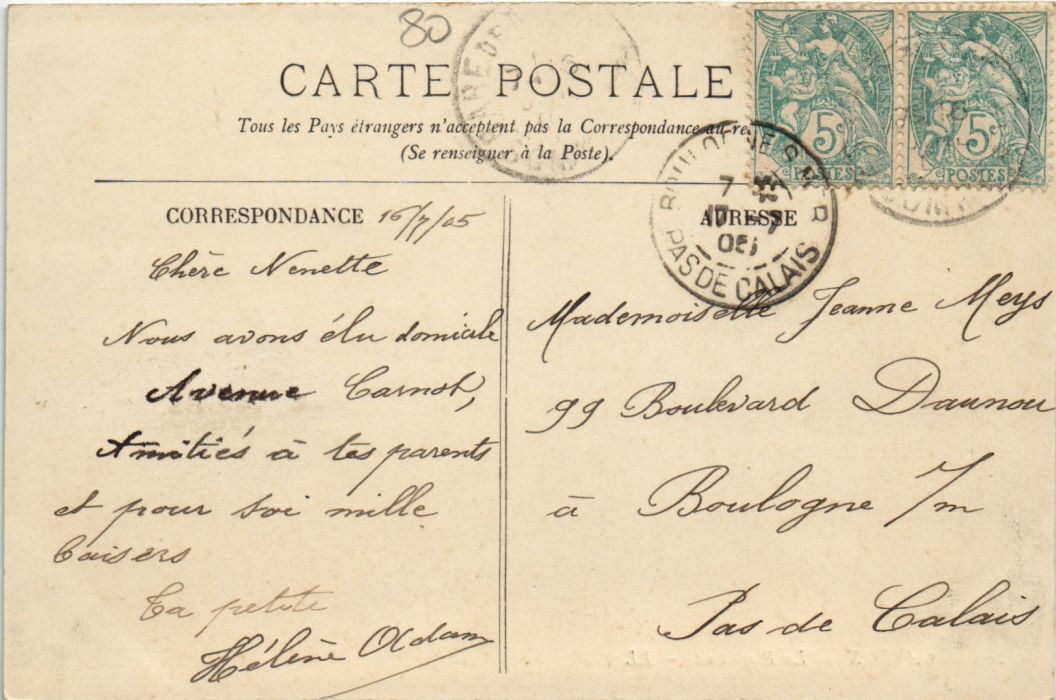 80
CARTE POSTALE
Tous les Pays étrangers n'acceptent pas la Correspondance au
(Se renseigner à la Poste).
5c
POSTES
5c
POSTES
BOULOGNE S MER
7
17 -7
05
PAS DE CALAIS
CORRESPONDANCE 16/7/05
Chère Nenette
Nous avons élu domicile
Avenue Carnot,
Amitiés à tes parents
et pour toi mille
baisers
Ta petite
Hélène Oldam
ADRESSE
Mademoiselle Jeanne Meys
99 Boulevard Daunou
à Boulogne s/m
Pas de Calais